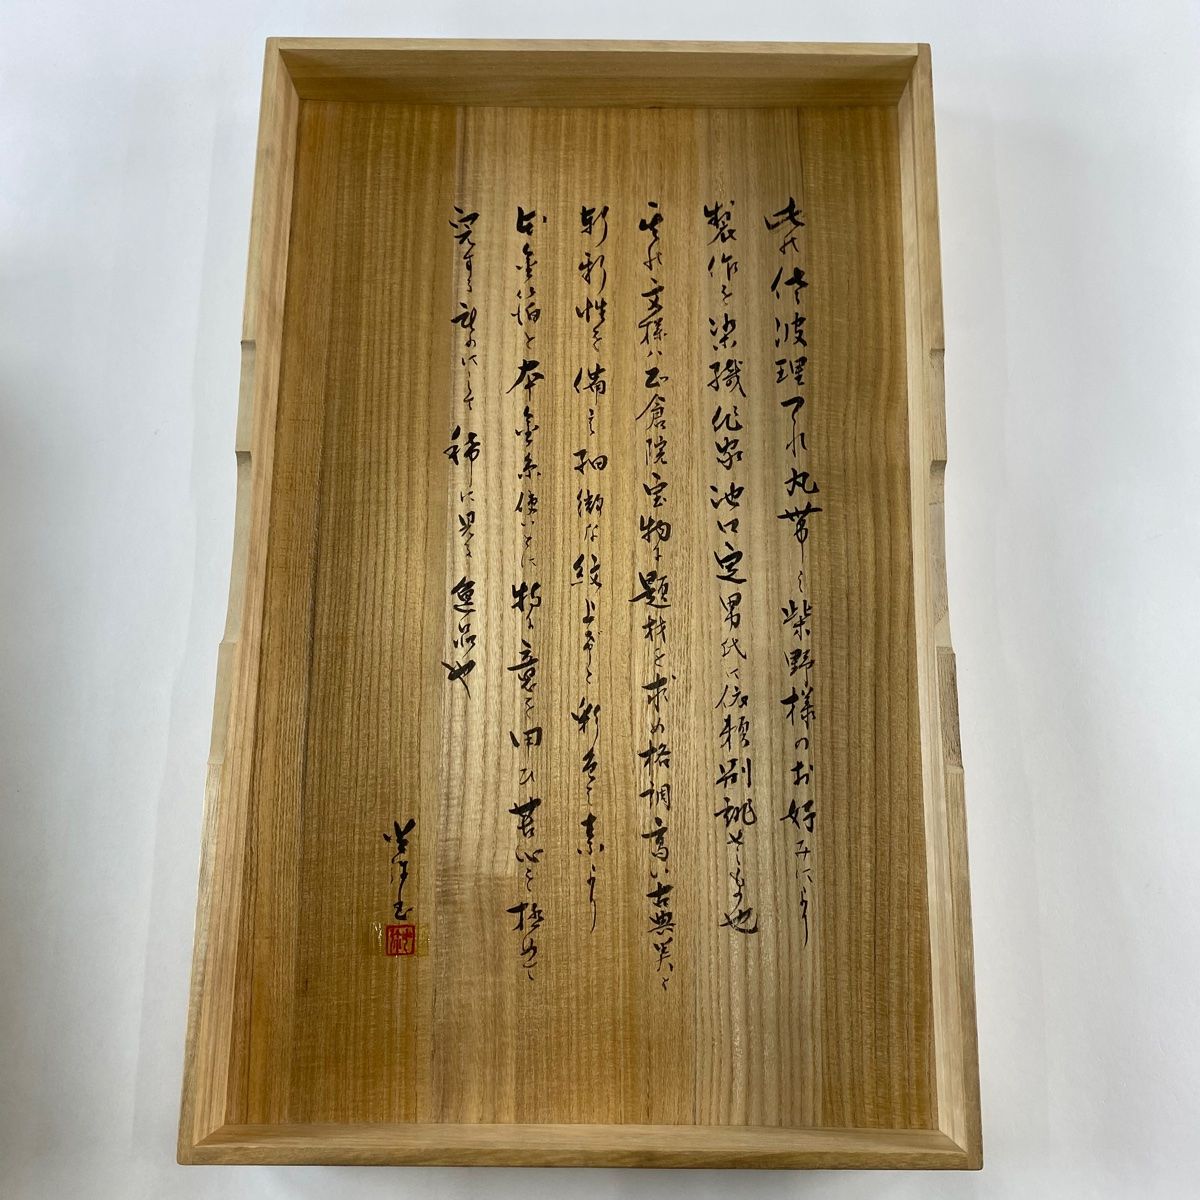 此の佐波理つづれ丸帯は柴野様のお好みにより
製作を染織作家池口定男氏に依頼別誂せしもの也
其の文様は正倉院宝物に題材を求め格調高い古典美と
斬新性を備え細微な紋上げと彩色は素より
本金箔と本金糸使いとに特に意を用ひ苦心を極めて
完する熟のにして稀に見る逸品也